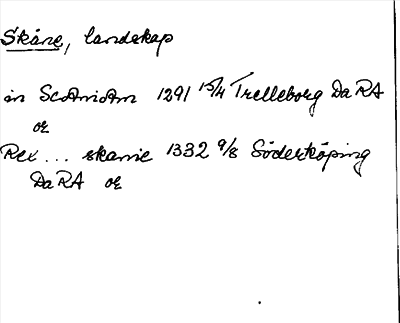 Skåne, landskap
in Scaniam 1291 15/4 Trelleborg DaRA
or
Rex ... skanie 1332 9/8 Söderköping
DaRA or